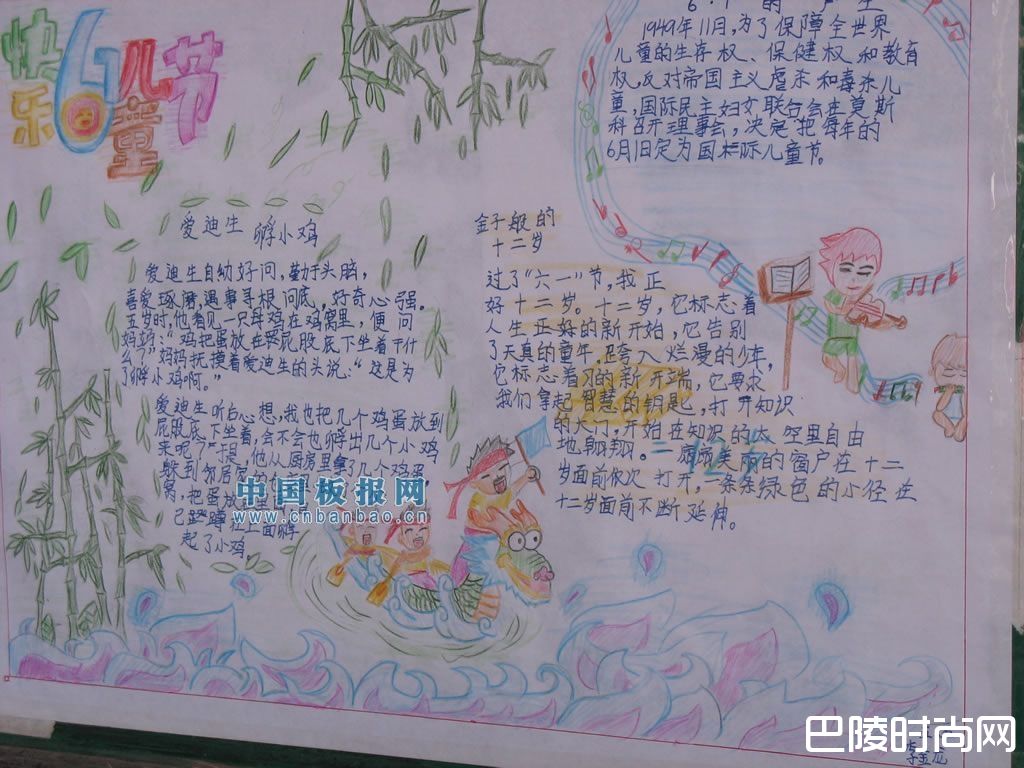 快乐61儿童节
6·1的产生
1949年11月,为了保障全世界
儿童的生存权、保健权和教育
权,反对帝国主义虐杀和毒杀儿
童,国际民主妇女联合会在莫斯
科召开理事会,决定把每年的
6月1日定为国际儿童节。
爱迪生孵小鸡
爱迪生自幼好问,勤于头脑,
喜爱琢磨,遇事寻根问底,好奇心强。
五岁时,他看见一只母鸡在鸡窝里,便问
妈妈:“鸡把蛋放在屁股底下坐着干什
么?”妈妈抚摸着爱迪生的头说:“这是为
了孵小鸡啊。”
爱迪生听后心想,我也把几个鸡蛋放到
屁股底下坐着,会不会也孵出几个小鸡
来呢?于是,他从厨房里拿了几个鸡蛋,
躲到邻居家的
窝,把蛋放
己蹲在上面孵
起了小鸡。
金子般的
十二岁
过了“六一”节,我正
好十二岁。十二岁,它标志着
人生正好的新开始,它告别
了天真的童年,跨入烂漫的少年,
它标志着的新开端,它要求
我们拿起智慧的钥匙,打开知识
的大门,开始在知识的太空里自由
地翱翔。一扇扇美丽的窗户在十二
岁面前依次打开,一条条绿色的小径在
十二岁面前不断延伸。
12岁
中国板报网
www.cnbanbao.cn
巴陵时尚网